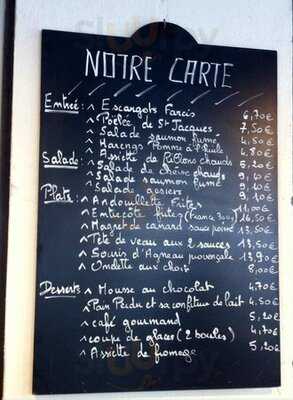 NOTRE CARTE
Entrée: ^ Escargots Farcis 6,70€
^ Poêlée de St Jacques 7,50€
^ Salade saumon fumé 4,50€
^ Harengs Pomme à l'huile 4,80€
^ Assiette de Rillons chauds 5,20€
Salade: ^ Salade de Chèvre chauds 9,10€
^ Salade saumon fumé 9,10€
^ Salade gésiers 9,10€
Plats: ^ Andouillette Frites 11,00€
^ Entrecôte frites (France 300g) 16,50€
^ Magret de canard sauce poivre 13,50€
^ Tête de veau aux 2 sauces 13,50€
^ Souris d'Agneau provençale 13,90€
^ Omelette aux choix 8,00€
Desserts ^ Mousse au chocolat 4,70€
^ Pain Perdu et sa confiture de lait 4,50€
^ café gourmand 5,20€
^ coupe de glaces (2 boules) 4,70€
^ Assiette de fromage 5,20€